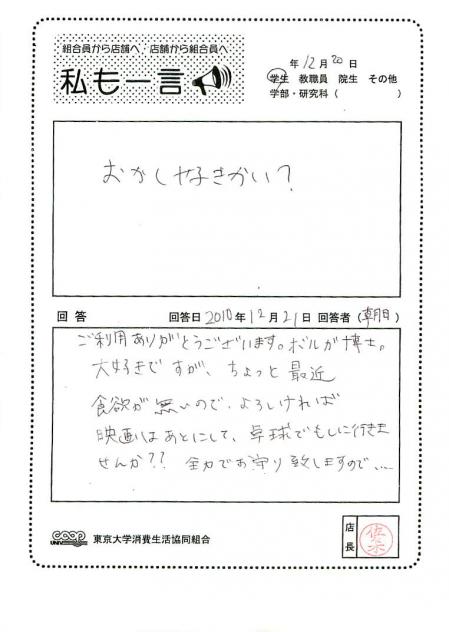 組合員から店舗へ、店舗から組合員へ
私も一言
年 12月 20日
学生 教職員 院生 その他
学部・研究科（ ）
おかし好きかい？
回答 回答日 2010年 12月 21日 回答者（朝日）
ご利用ありがとうございます。ボルガ博士。
大好きですが、ちょっと最近
食欲が無いので、よろしければ
映画はあとにして、卓球でもしに行きま
せんか？？ 全力でお守り致しますので…
UNIV CO-OP 東京大学消費生活協同組合
店長